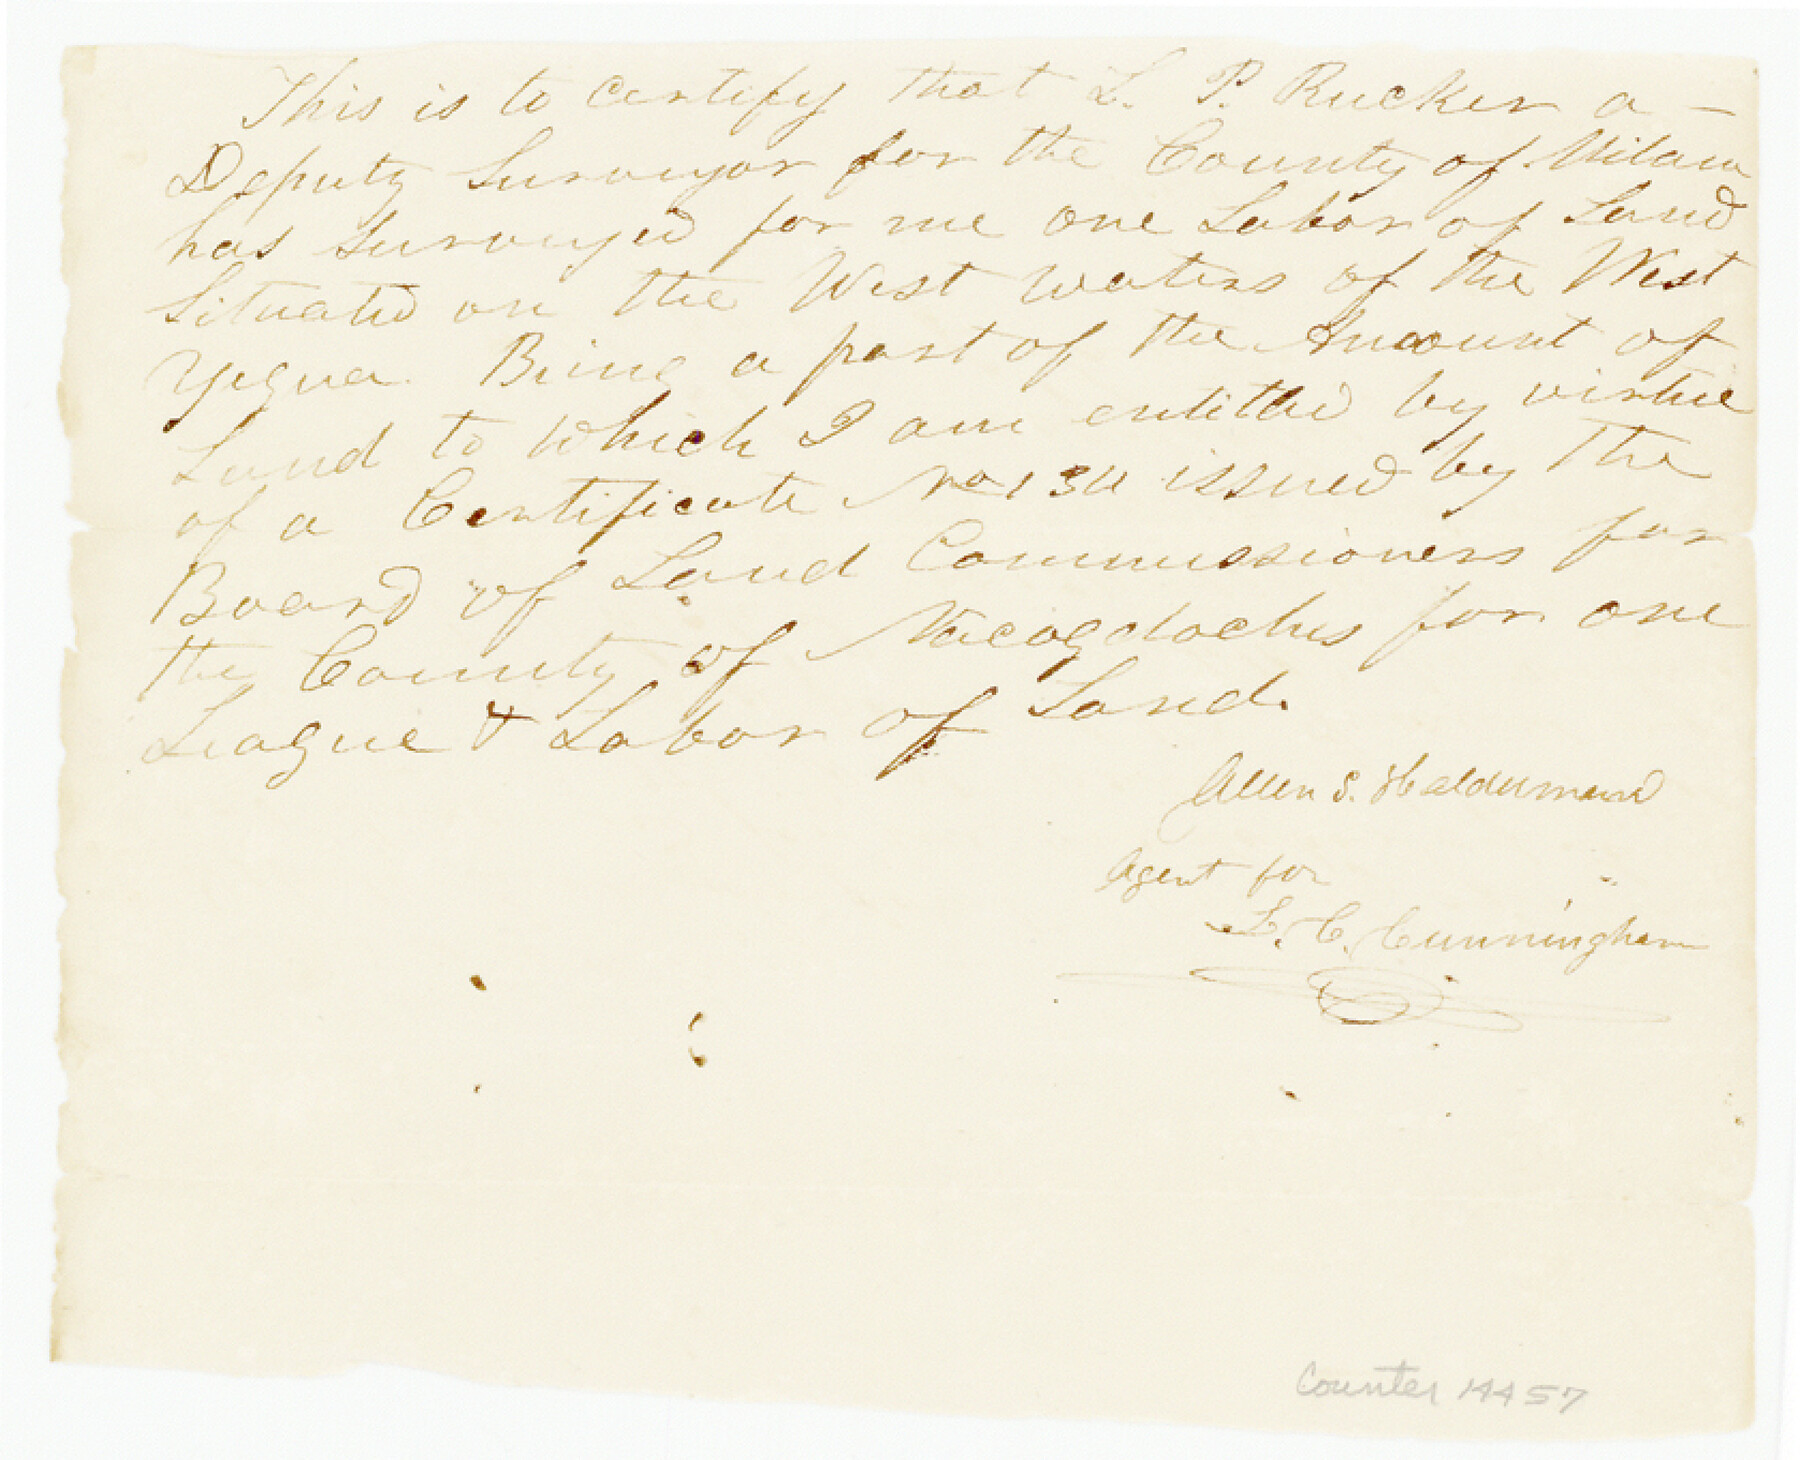 This is to certify that L. P. Rucker a —
Deputy Surveyor for the County of Milam
has Surveyed for me one Labor of Land
Situated on the West waters of the West
Yegua. Being a part of the Amount of
Land to which I am entitled by virtue
of a Certificate No issued by the
Board of Land Commissioners for
the County of Nacogdoches for one
League & Labor of Land.
Allen S. Haldermand
Agent for
L. C. Cunningham
Counter 14457